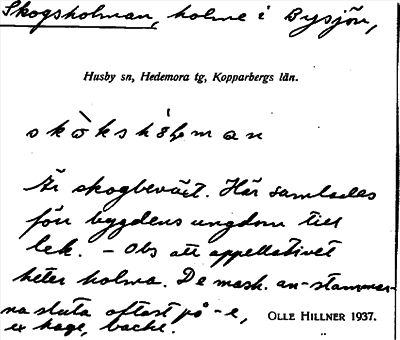 Skogsholman, holme i Bysjön,
Husby sn, Hedemora tg, Kopparbergs län.
Är skogbeväxt. Här samlades
förr bygdens ungdom till
lek. – Obs att appellativet
heter holma. De mask. an-stammar-
na sluta oftast på -e,
ex hage, backe.
OLLE HILLNER 1937.